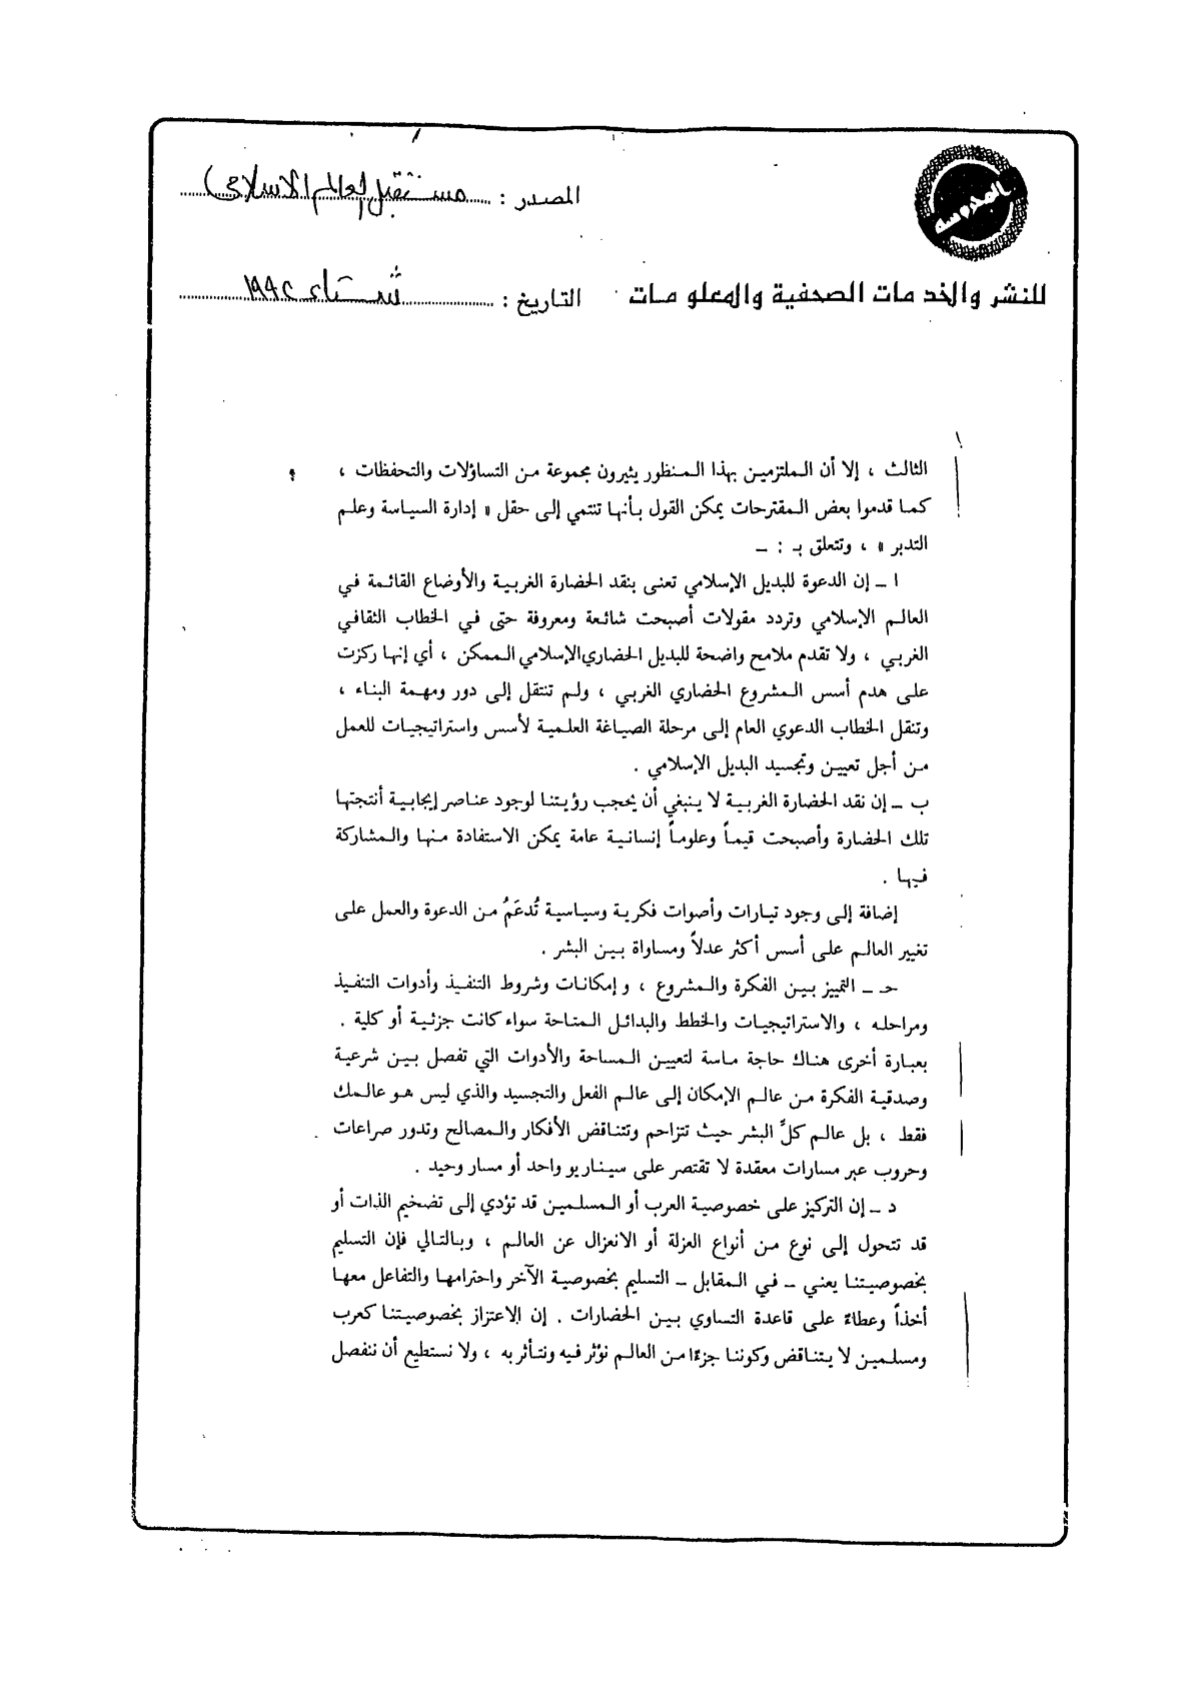 المصدر : مستقبل العالم الاسلامى
المحروسة
للنشر والخدمات الصحفية والمعلومات
التاريخ : شتاء ١٩٩٢
الثالث ، إلا أن الملتزمين بهذا المنظور يثيرون مجموعة من التساؤلات والتحفظات ،
كما قدموا بعض المقترحات يمكن القول بأنها تنتمي إلى حقل « إدارة السياسة وعلم
التدبر » ، وتتعلق بـ : ــ
ا ــ إن الدعوة للبديل الإسلامي تعنى بنقد الحضارة الغربية والأوضاع القائمة في
العالم الإسلامي وتردد مقولات أصبحت شائعة ومعروفة حتى في الخطاب الثقافي
الغربي ، ولا تقدم ملامح واضحة للبديل الحضاري الإسلامي الممكن ، أي إنها ركزت
على هدم أسس المشروع الحضاري الغربي ، ولم تنتقل إلى دور ومهمة البناء ،
وتنقل الخطاب الدعوي العام إلى مرحلة الصياغة العلمية لأسس واستراتيجيات للعمل
من أجل تعيين وتجسيد البديل الإسلامي .
ب ــ إن نقد الحضارة الغربية لا ينبغي أن يحجب رؤيتنا لوجود عناصر إيجابية أنتجتها
تلك الحضارة وأصبحت قيماً وعلوماً إنسانية عامة يمكن الاستفادة منها والمشاركة
فيها .
إضافة إلى وجود تيارات وأصوات فكرية وسياسية تُدعَمُ من الدعوة والعمل على
تغيير العالم على أسس أكثر عدلاً ومساواة بين البشر .
حـ ــ التمييز بين الفكرة والمشروع ، وإمكانات وشروط التنفيذ وأدوات التنفيذ
ومراحله ، والاستراتيجيات والخطط والبدائل المتاحة سواء كانت جزئية أو كلية .
بعبارة أخرى هناك حاجة ماسة لتعيين المساحة والأدوات التي تفصل بين شرعية
وصدقية الفكرة من عالم الإمكان إلى عالم الفعل والتجسيد والذي ليس هو عالمك
فقط ، بل عالم كلَّ البشر حيث تتزاحم وتتناقض الأفكار والمصالح وتدور صراعات
وحروب عبر مسارات معقدة لا تقتصر على سيناريو واحد أو مسار وحيد .
د ــ إن التركيز على خصوصية العرب أو المسلمين قد تؤدي إلى تضخيم الذات أو
قد تتحول إلى نوع من أنواع العزلة أو الانعزال عن العالم ، وبالتالي فإن التسليم
بخصوصيتنا يعني ــ في المقابل ــ التسليم بخصوصية الآخر واحترامها والتفاعل معها
أخذاً وعطاءً على قاعدة التساوي بين الحضارات . إن الاعتزاز بخصوصيتنا كعرب
ومسلمين لا يتناقض وكوننا جزءًا من العالم نؤثر فيه ونتأثر به ، ولا نستطيع أن ننفصل